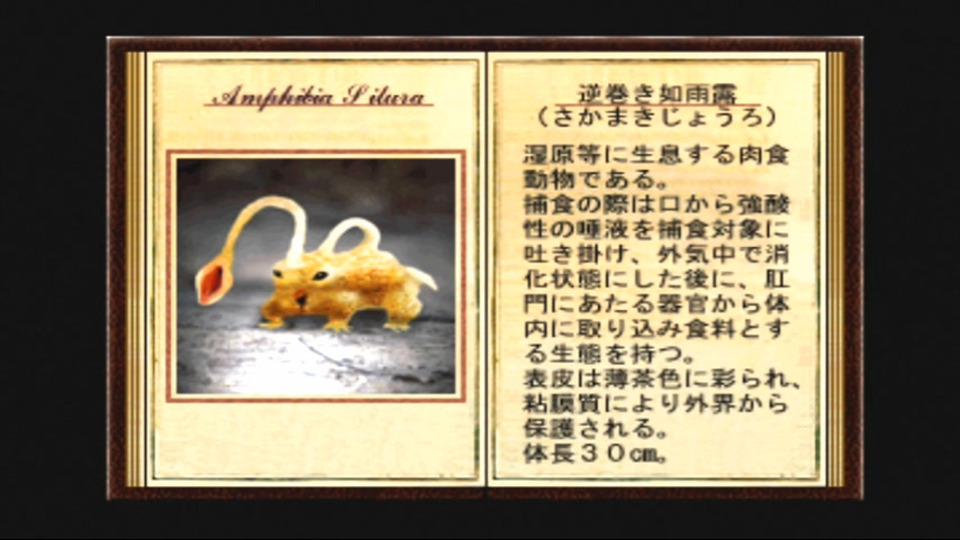 Amphibia Situra
逆巻き如雨露
(さかまきじょうろ)
湿原等に生息する肉食
動物である。
捕食の際は口から強酸
性の唾液を捕食対象に
吐き掛け、外気中で消
化状態にした後に、肛
門にあたる器官から体
内に取り込み食料とす
る生態を持つ。
表皮は薄茶色に彩られ、
粘膜質により外界から
保護される。
体長30cm。